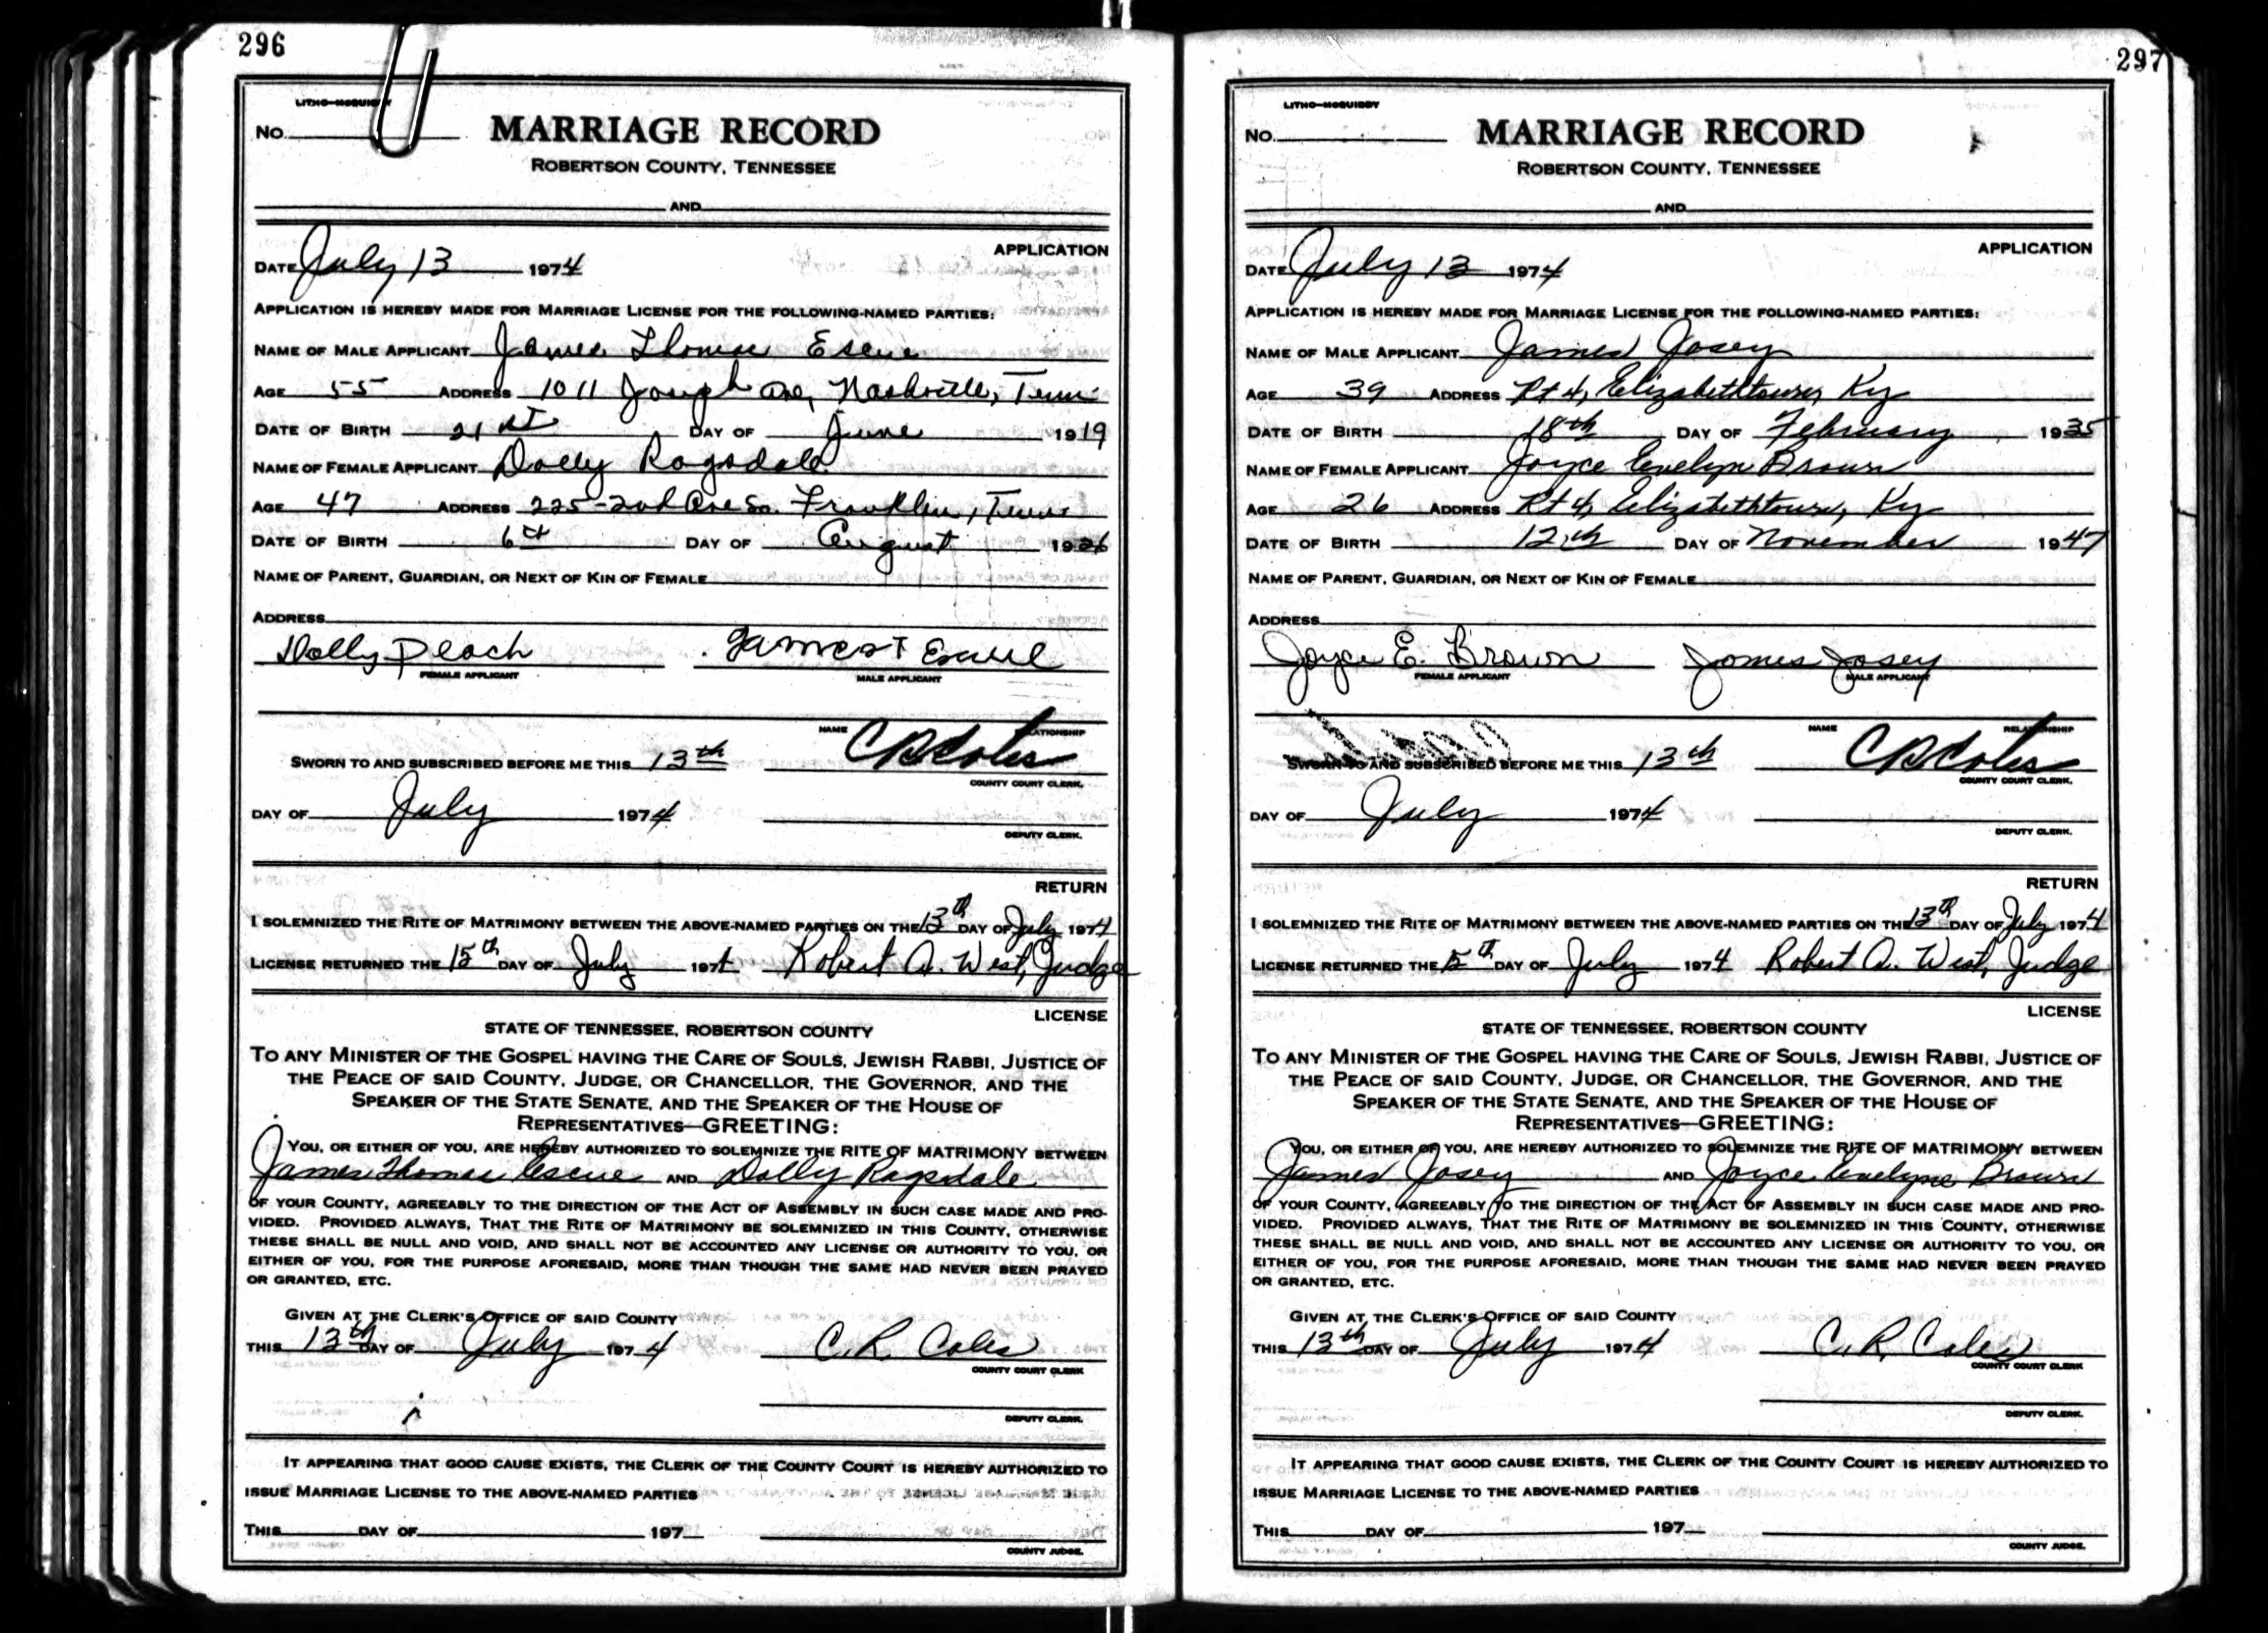 296
LITHO—McQUIDDY
No.
MARRIAGE RECORD
ROBERTSON COUNTY, TENNESSEE
AND
APPLICATION
DATE July 13 1974
APPLICATION IS HEREBY MADE FOR MARRIAGE LICENSE FOR THE FOLLOWING-NAMED PARTIES:
NAME OF MALE APPLICANT James Thomas Escue
AGE 55 ADDRESS 1011 Joseph Ave, Nashville, Tenn
DATE OF BIRTH 21st DAY OF June 1919
NAME OF FEMALE APPLICANT Dolly Ragsdale
AGE 47 ADDRESS 225-2nd Ave So. Franklin, Tenn
DATE OF BIRTH 6th DAY OF August 1926
NAME OF PARENT, GUARDIAN, OR NEXT OF KIN OF FEMALE
ADDRESS
Dolly Peach James T Escue
FEMALE APPLICANT MALE APPLICANT
NAME RELATIONSHIP
SWORN TO AND SUBSCRIBED BEFORE ME THIS 13th CR Coles
COUNTY COURT CLERK.
DAY OF July 1974
DEPUTY CLERK.
RETURN
I SOLEMNIZED THE RITE OF MATRIMONY BETWEEN THE ABOVE-NAMED PARTIES ON THE 13th DAY OF July 1974
LICENSE RETURNED THE 15th DAY OF July 1974 Robert A. West, Judge
LICENSE
STATE OF TENNESSEE, ROBERTSON COUNTY
TO ANY MINISTER OF THE GOSPEL HAVING THE CARE OF SOULS, JEWISH RABBI, JUSTICE OF
THE PEACE OF SAID COUNTY, JUDGE, OR CHANCELLOR, THE GOVERNOR, AND THE
SPEAKER OF THE STATE SENATE, AND THE SPEAKER OF THE HOUSE OF
REPRESENTATIVES—GREETING:
YOU, OR EITHER OF YOU, ARE HEREBY AUTHORIZED TO SOLEMNIZE THE RITE OF MATRIMONY BETWEEN
James Thomas Escue AND Dolly Ragsdale
OF YOUR COUNTY, AGREEABLY TO THE DIRECTION OF THE ACT OF ASSEMBLY IN SUCH CASE MADE AND PRO-
VIDED. PROVIDED ALWAYS, THAT THE RITE OF MATRIMONY BE SOLEMNIZED IN THIS COUNTY, OTHERWISE
THESE SHALL BE NULL AND VOID, AND SHALL NOT BE ACCOUNTED ANY LICENSE OR AUTHORITY TO YOU, OR
EITHER OF YOU, FOR THE PURPOSE AFORESAID, MORE THAN THOUGH THE SAME HAD NEVER BEEN PRAYED
OR GRANTED, ETC.
GIVEN AT THE CLERK'S OFFICE OF SAID COUNTY
THIS 13th DAY OF July 1974 C. R. Coles
COUNTY COURT CLERK
DEPUTY CLERK.
IT APPEARING THAT GOOD CAUSE EXISTS, THE CLERK OF THE COUNTY COURT IS HEREBY AUTHORIZED TO
ISSUE MARRIAGE LICENSE TO THE ABOVE-NAMED PARTIES
THIS DAY OF 197
COUNTY JUDGE.
297
LITHO—McQUIDDY
No.
MARRIAGE RECORD
ROBERTSON COUNTY, TENNESSEE
AND
APPLICATION
DATE July 13 1974
APPLICATION IS HEREBY MADE FOR MARRIAGE LICENSE FOR THE FOLLOWING-NAMED PARTIES:
NAME OF MALE APPLICANT James Josey
AGE 39 ADDRESS Rt 4, Elizabethtown, Ky
DATE OF BIRTH 18th DAY OF February 1935
NAME OF FEMALE APPLICANT Joyce Evelyn Brown
AGE 26 ADDRESS Rt 4, Elizabethtown, Ky
DATE OF BIRTH 12th DAY OF November 1947
NAME OF PARENT, GUARDIAN, OR NEXT OF KIN OF FEMALE
ADDRESS
Joyce E. Brown James Josey
FEMALE APPLICANT MALE APPLICANT
NAME RELATIONSHIP
SWORN TO AND SUBSCRIBED BEFORE ME THIS 13th CR Coles
COUNTY COURT CLERK.
DAY OF July 1974
DEPUTY CLERK.
RETURN
I SOLEMNIZED THE RITE OF MATRIMONY BETWEEN THE ABOVE-NAMED PARTIES ON THE 13th DAY OF July 1974
LICENSE RETURNED THE 15th DAY OF July 1974 Robert A. West, Judge
LICENSE
STATE OF TENNESSEE, ROBERTSON COUNTY
TO ANY MINISTER OF THE GOSPEL HAVING THE CARE OF SOULS, JEWISH RABBI, JUSTICE OF
THE PEACE OF SAID COUNTY, JUDGE, OR CHANCELLOR, THE GOVERNOR, AND THE
SPEAKER OF THE STATE SENATE, AND THE SPEAKER OF THE HOUSE OF
REPRESENTATIVES—GREETING:
YOU, OR EITHER OF YOU, ARE HEREBY AUTHORIZED TO SOLEMNIZE THE RITE OF MATRIMONY BETWEEN
James Josey AND Joyce Evelyne Brown
OF YOUR COUNTY, AGREEABLY TO THE DIRECTION OF THE ACT OF ASSEMBLY IN SUCH CASE MADE AND PRO-
VIDED. PROVIDED ALWAYS, THAT THE RITE OF MATRIMONY BE SOLEMNIZED IN THIS COUNTY, OTHERWISE
THESE SHALL BE NULL AND VOID, AND SHALL NOT BE ACCOUNTED ANY LICENSE OR AUTHORITY TO YOU, OR
EITHER OF YOU, FOR THE PURPOSE AFORESAID, MORE THAN THOUGH THE SAME HAD NEVER BEEN PRAYED
OR GRANTED, ETC.
GIVEN AT THE CLERK'S OFFICE OF SAID COUNTY
THIS 13th DAY OF July 1974 C. R. Coles
COUNTY COURT CLERK
DEPUTY CLERK.
IT APPEARING THAT GOOD CAUSE EXISTS, THE CLERK OF THE COUNTY COURT IS HEREBY AUTHORIZED TO
ISSUE MARRIAGE LICENSE TO THE ABOVE-NAMED PARTIES
THIS DAY OF 197
COUNTY JUDGE.